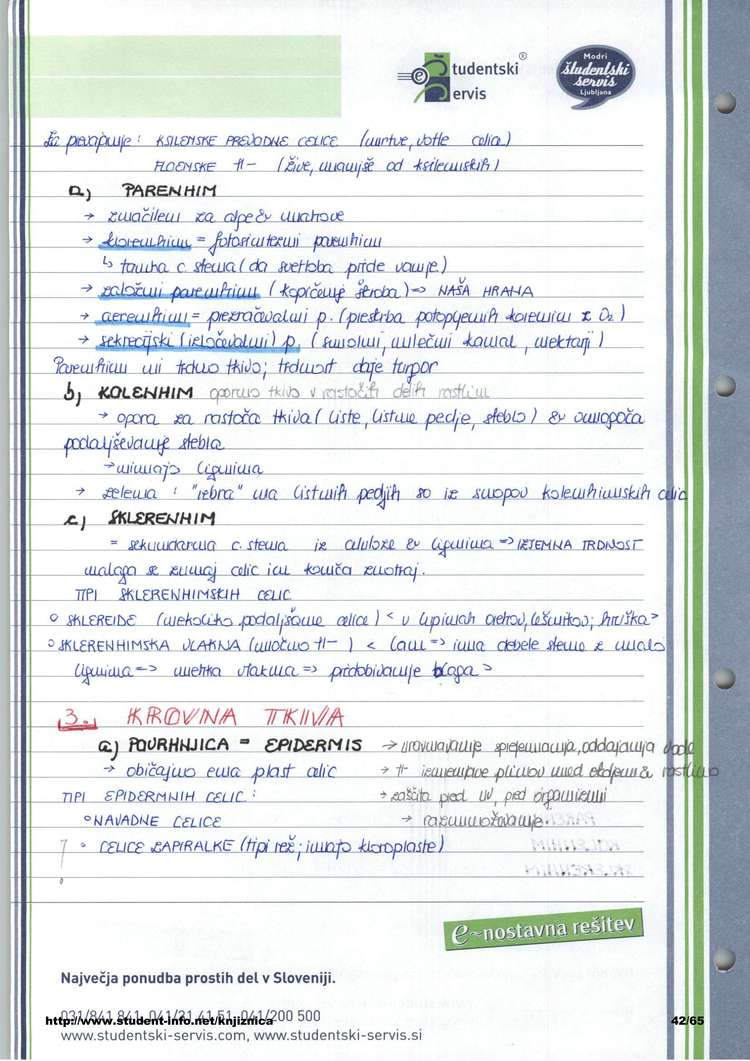 Študentski Servis ®
Modri Študentski servis Ljubljana
Za prevajanje : KSILEMSKE PREVODNE CELICE (mrtve, votle celice)
FLOEMSKE -||- (žive, manjše od ksilemskih)
a) PARENHIM
→ značilen za alge & mahove
→ klorenhim = fotosintezni parenhim
↳ tanka c. stena (da svetloba pride vanje)
→ založni parenhim (kopičenje škroba) => NAŠA HRANA
→ aerenhim = prezračevalni p. (preskrba potopljenih korenin z O₂)
→ sekrecijski (izločevalni) p. (smolni, mlečni kanal, nektarji)
Parenhim ni trdno tkivo; trdnost daje turgor
b) KOLENHIM oporno tkivo v rastočih delih rastlin
→ opora za rastoča tkiva (liste, listne peclje, steblo) & omogoča
podaljševanje stebla
→ nimajo lignina
→ zelena : "rebra" na listnih pecljih so iz snopov kolenhimskih celic
c) SKLERENHIM
= sekundarna c. stena iz celuloze & lignina => IZJEMNA TRDNOST
nalaga se zunaj celic in konča znotraj.
TIPI SKLERENHIMSKIH CELIC
○ SKLEREIDE (nekoliko podaljšane celice) < v lupinah orehov, lešnikov; hruška>
○ SKLERENHIMSKA VLAKNA (močno -||- ) < lan => ima debele stene z malo
lignina => mehka vlakna => pridobivanje blaga >
3. KROVNA TKIVA
a) POVRHNJICA = EPIDERMIS → uravnavanje sprejemanja, oddajanja vode
→ običajno ena plast celic → -||- izmenjave plinov med okoljem & rastlino
TIPI EPIDERMNIH CELIC : → zaščita pred UV, pred organizmi
○ NAVADNE CELICE → razmnoževanje
○ CELICE ZAPIRALKE (tipi rež; imajo kloroplaste)
e~nostavna rešitev
Največja ponudba prostih del v Sloveniji.
031/841 841, 041/21 41 51, 041/200 500
http://www.student-info.net/knjiznica 42/65
www.studentski-servis.com, www.studentski-servis.si